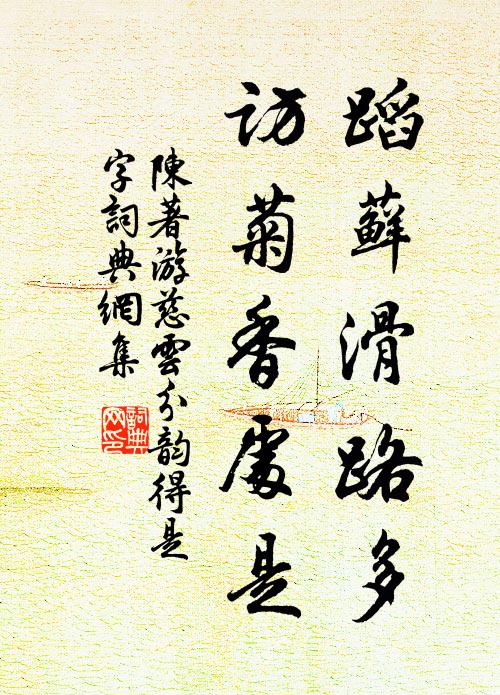 蹈蘚滑路多
訪菊香處是
陳著游慈雲分韵得是
字詞典網集
詞典网印